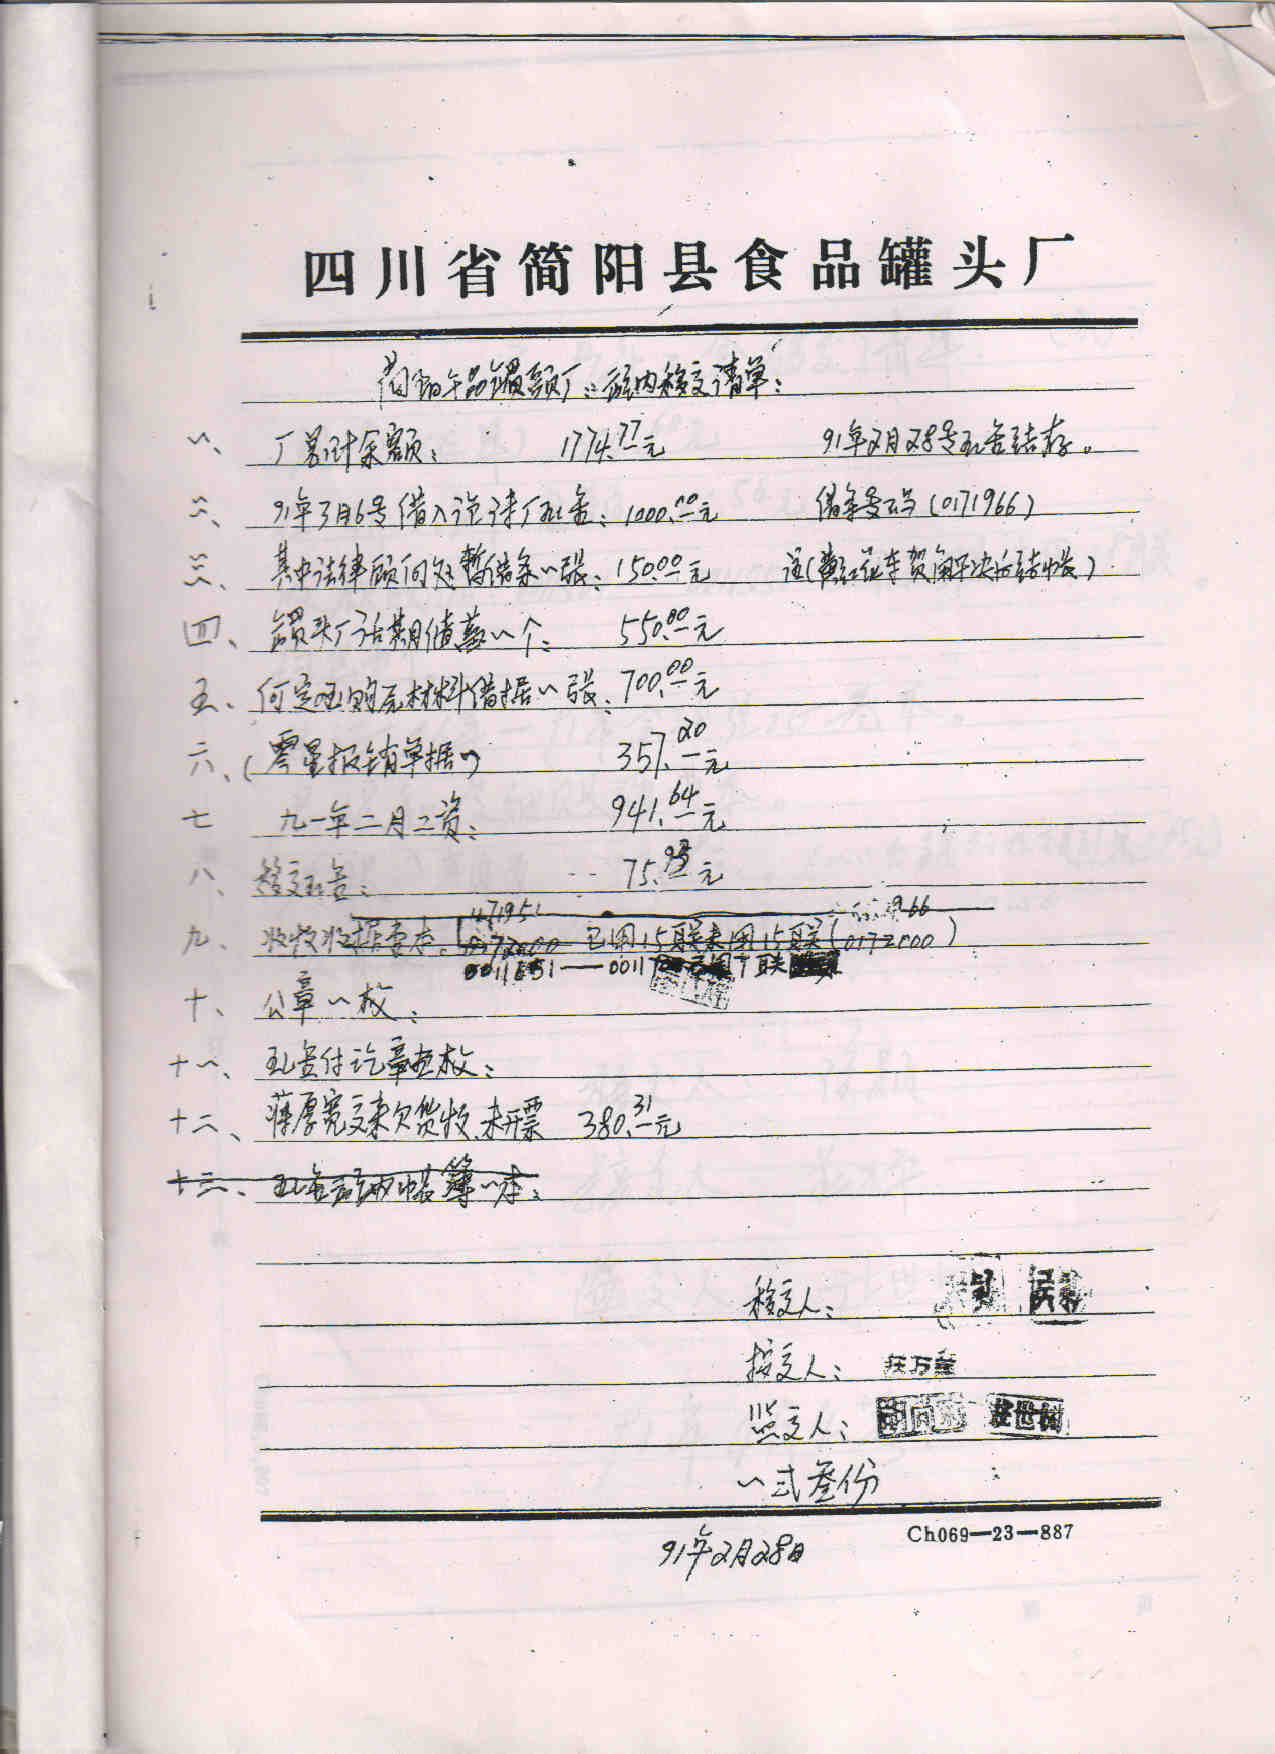 四川省简阳县食品罐头厂
简阳 品罐头厂: 内移交清单:
一、 厂累计余额: 1774.77元 91年2月28号现金结存。
二、 91年3月6号借入 厂现金: 1000.00元 借条号码(0171966)
三、 其中法律顾问处暂借条一张: 150.00元 注( 解决后结帐)
四、 罐头厂活期储蓄一个: 550.00元
五、 何定 购元材料借据一张: 700.00元
六、 (零星报销单据) 357.20元
七 九一年二月工资: 941.64元
八、 移交现金: 75. 元
九、 收据 本。 0172000 已用15联未用15联(0172000)
0011651——0011
十、 公章一枚:
十一、 现金付讫章壹枚:
十二、 交来欠货款.未开票 380.31元
十三、 现金 帐簿一本:
移交人:
接交人: 万
监交人: 胡尚 世
一式叁份
Ch069—23—887
91年2月28日